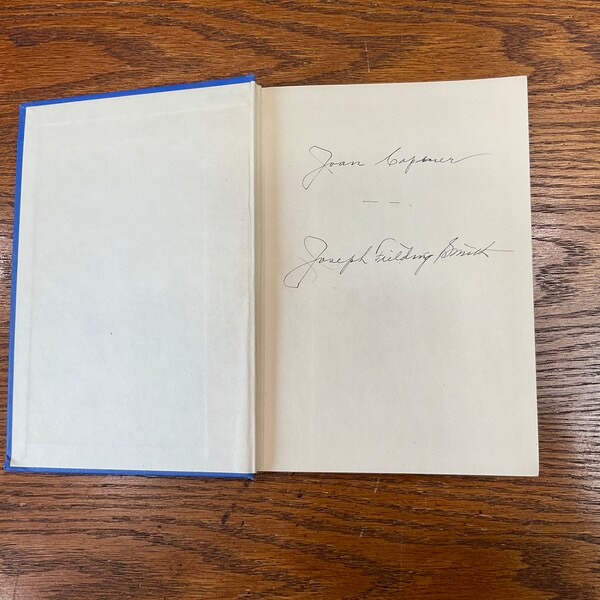 Joan Capner
— — .
Joseph Fielding Smith